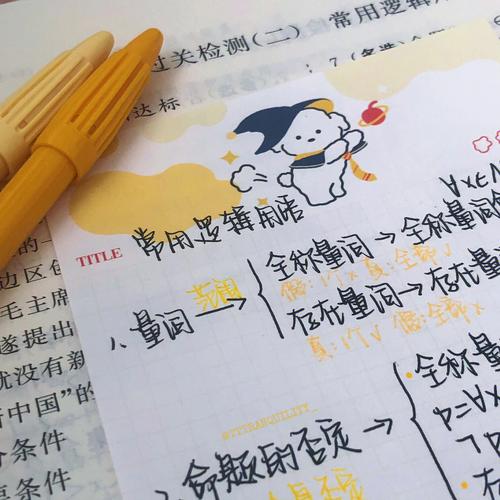 过关检测(二) 常用逻辑
7.(多选)
达标
TITLE 常用逻辑用语
∀x∈
全称量词→全称量词
假:1个× 真:全部√
1、量词 范围→
存在量词→存在量
真:1个√ 假:全部×
@TTTRANQUILITY_
命题的否定→
全称量
p=∀x
¬p
边区
毛主席
遂提出
就没有新
中国"的
条件
条件